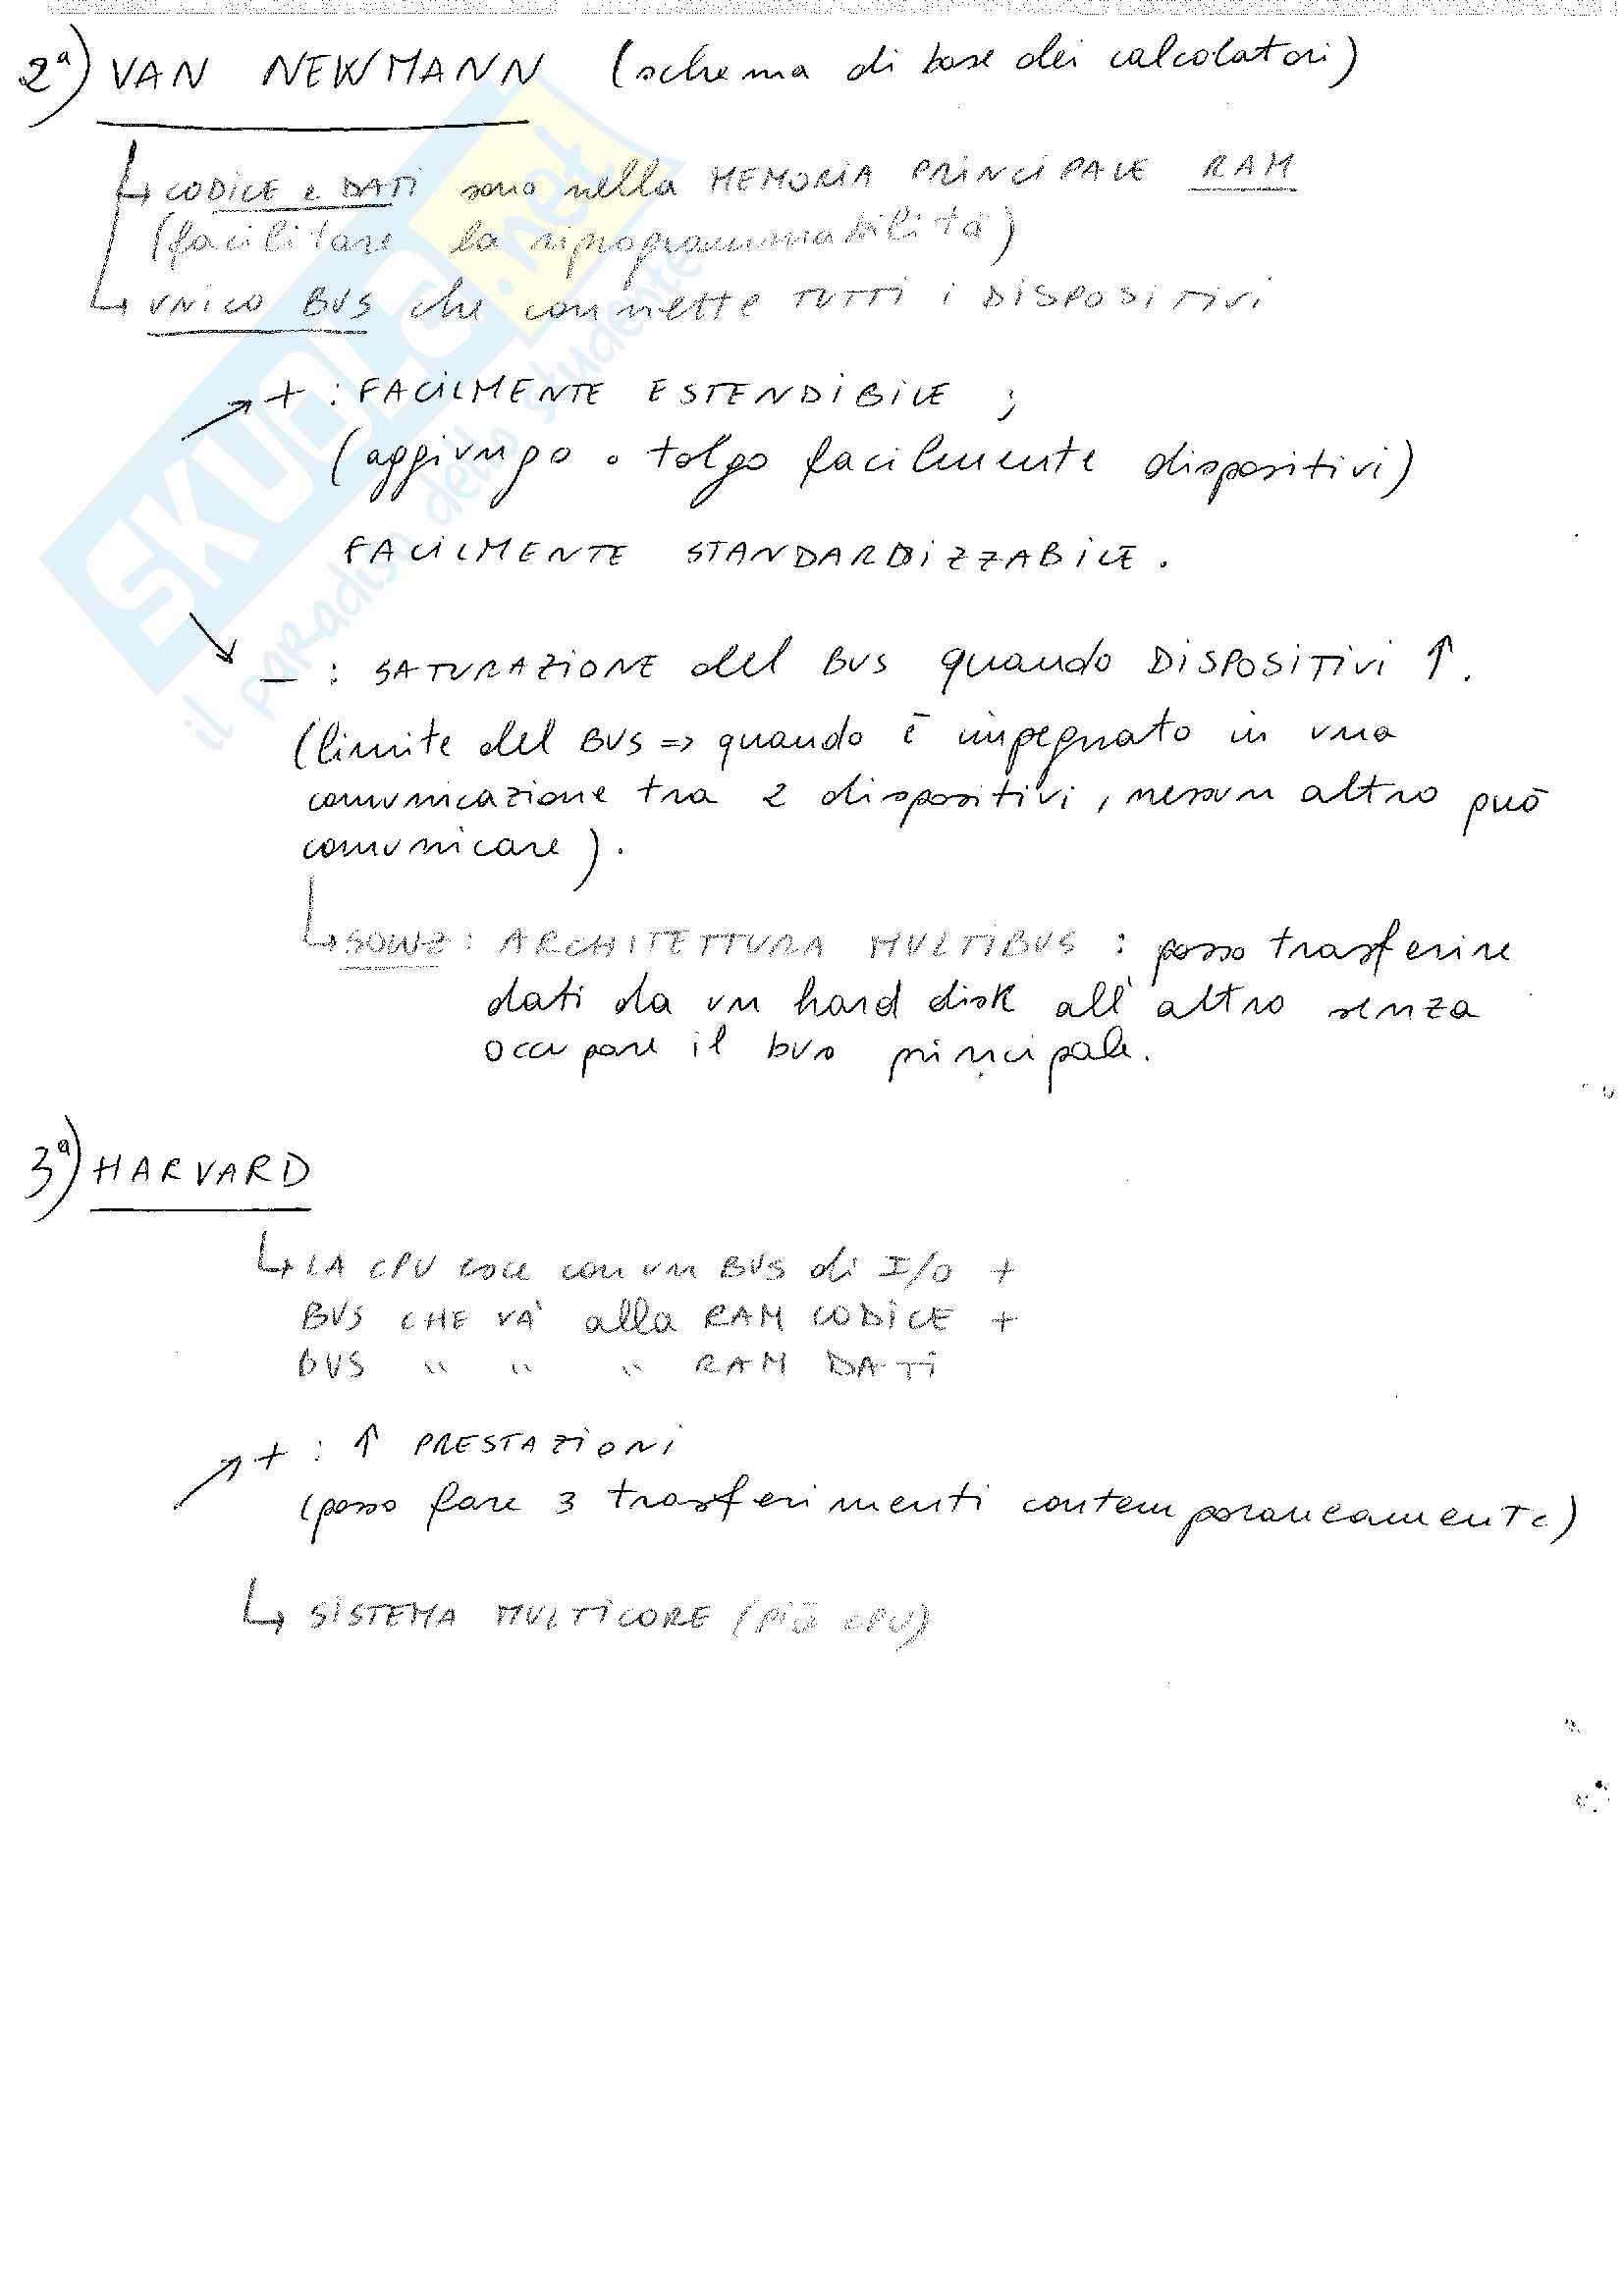 2ª) VAN NEWMANN (schema di base dei calcolatori)
↳ CODICE e DATI sono nella MEMORIA PRINCIPALE RAM
(facilitare la riprogrammabilità)
↳ UNICO BUS che connette TUTTI i DISPOSITIVI
↗ + : FACILMENTE ESTENDIBILE ;
(aggiungo o tolgo facilmente dispositivi)
FACILMENTE STANDARDIZZABILE.
↘ − : SATURAZIONE del BUS quando DISPOSITIVI ↑.
(limite del BUS => quando è impegnato in una
comunicazione tra 2 dispositivi, nessun altro può
comunicare).
↳ SOLUZ : ARCHITETTURA MULTIBUS : posso trasferire
dati da un hard disk all'altro senza
occupare il bus principale.
3ª) HARVARD
↳ LA CPU esce con un BUS di I/O +
BUS CHE VA' alla RAM CODICE +
BUS " " " RAM DATI
↗ + : ↑ PRESTAZIONI
(posso fare 3 trasferimenti contemporaneamente)
↳ SISTEMA MULTICORE (più CPU)
SKUOLA.net
il paradiso dello studente